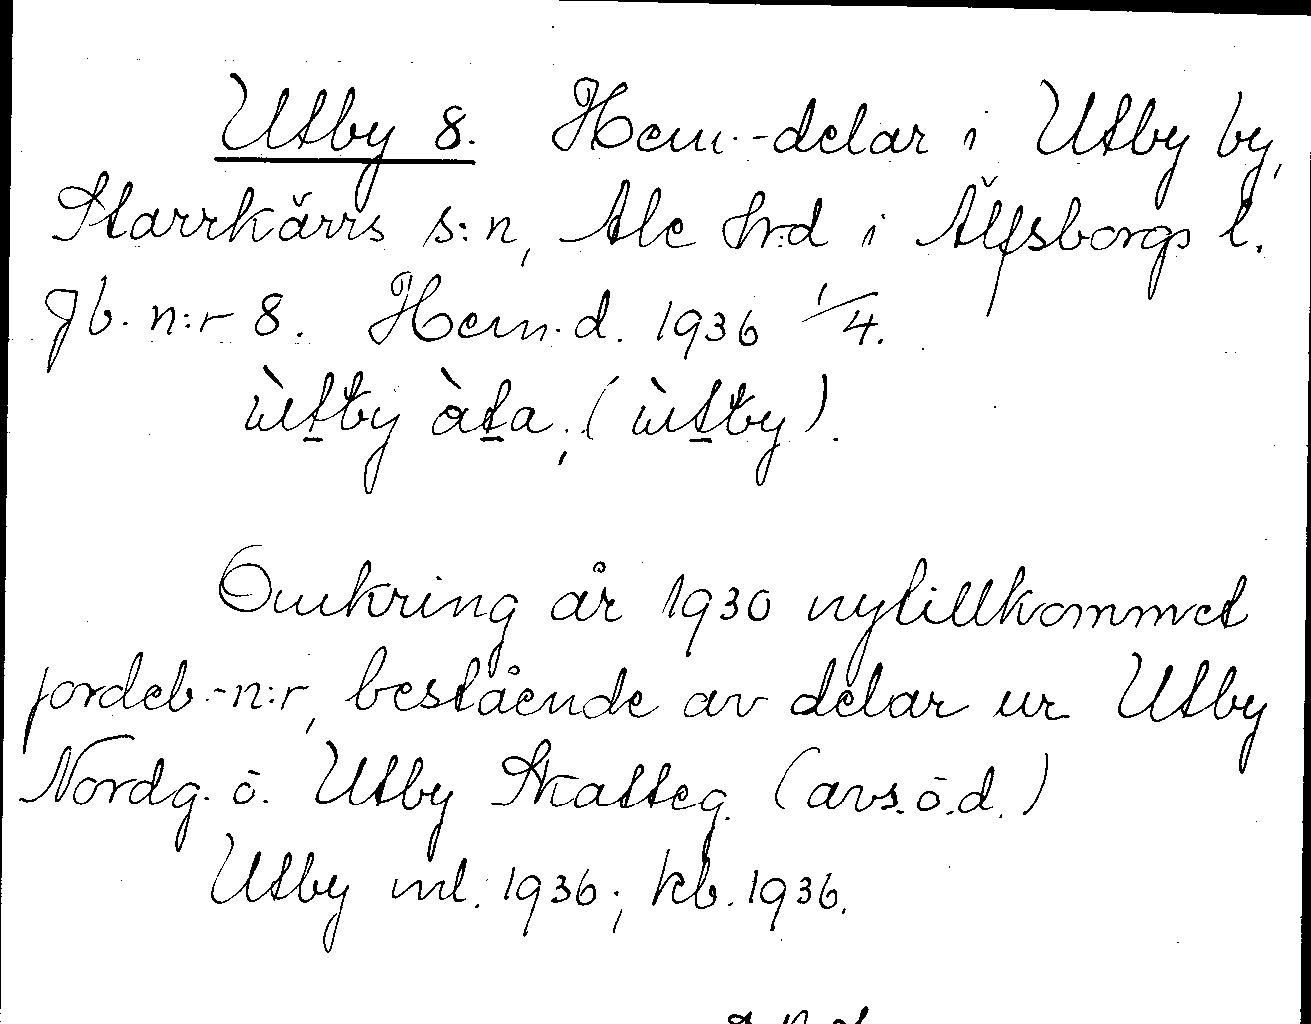 Utby 8. Hem.-delar i Utby by,
Starrkärrs s:n, Ale hrd i Älfsborgs l.
Jb. n:r 8. Hem.d. 1936 1/4.
ùtby àta; (ùtby).
Omkring år 1930 nytillkommet
jordeb.-n:r, bestående av delar ur Utby
Nordg. ö. Utby Skatteg. (avs.ö.d.)
Utby ml. 1936; kb. 1936.